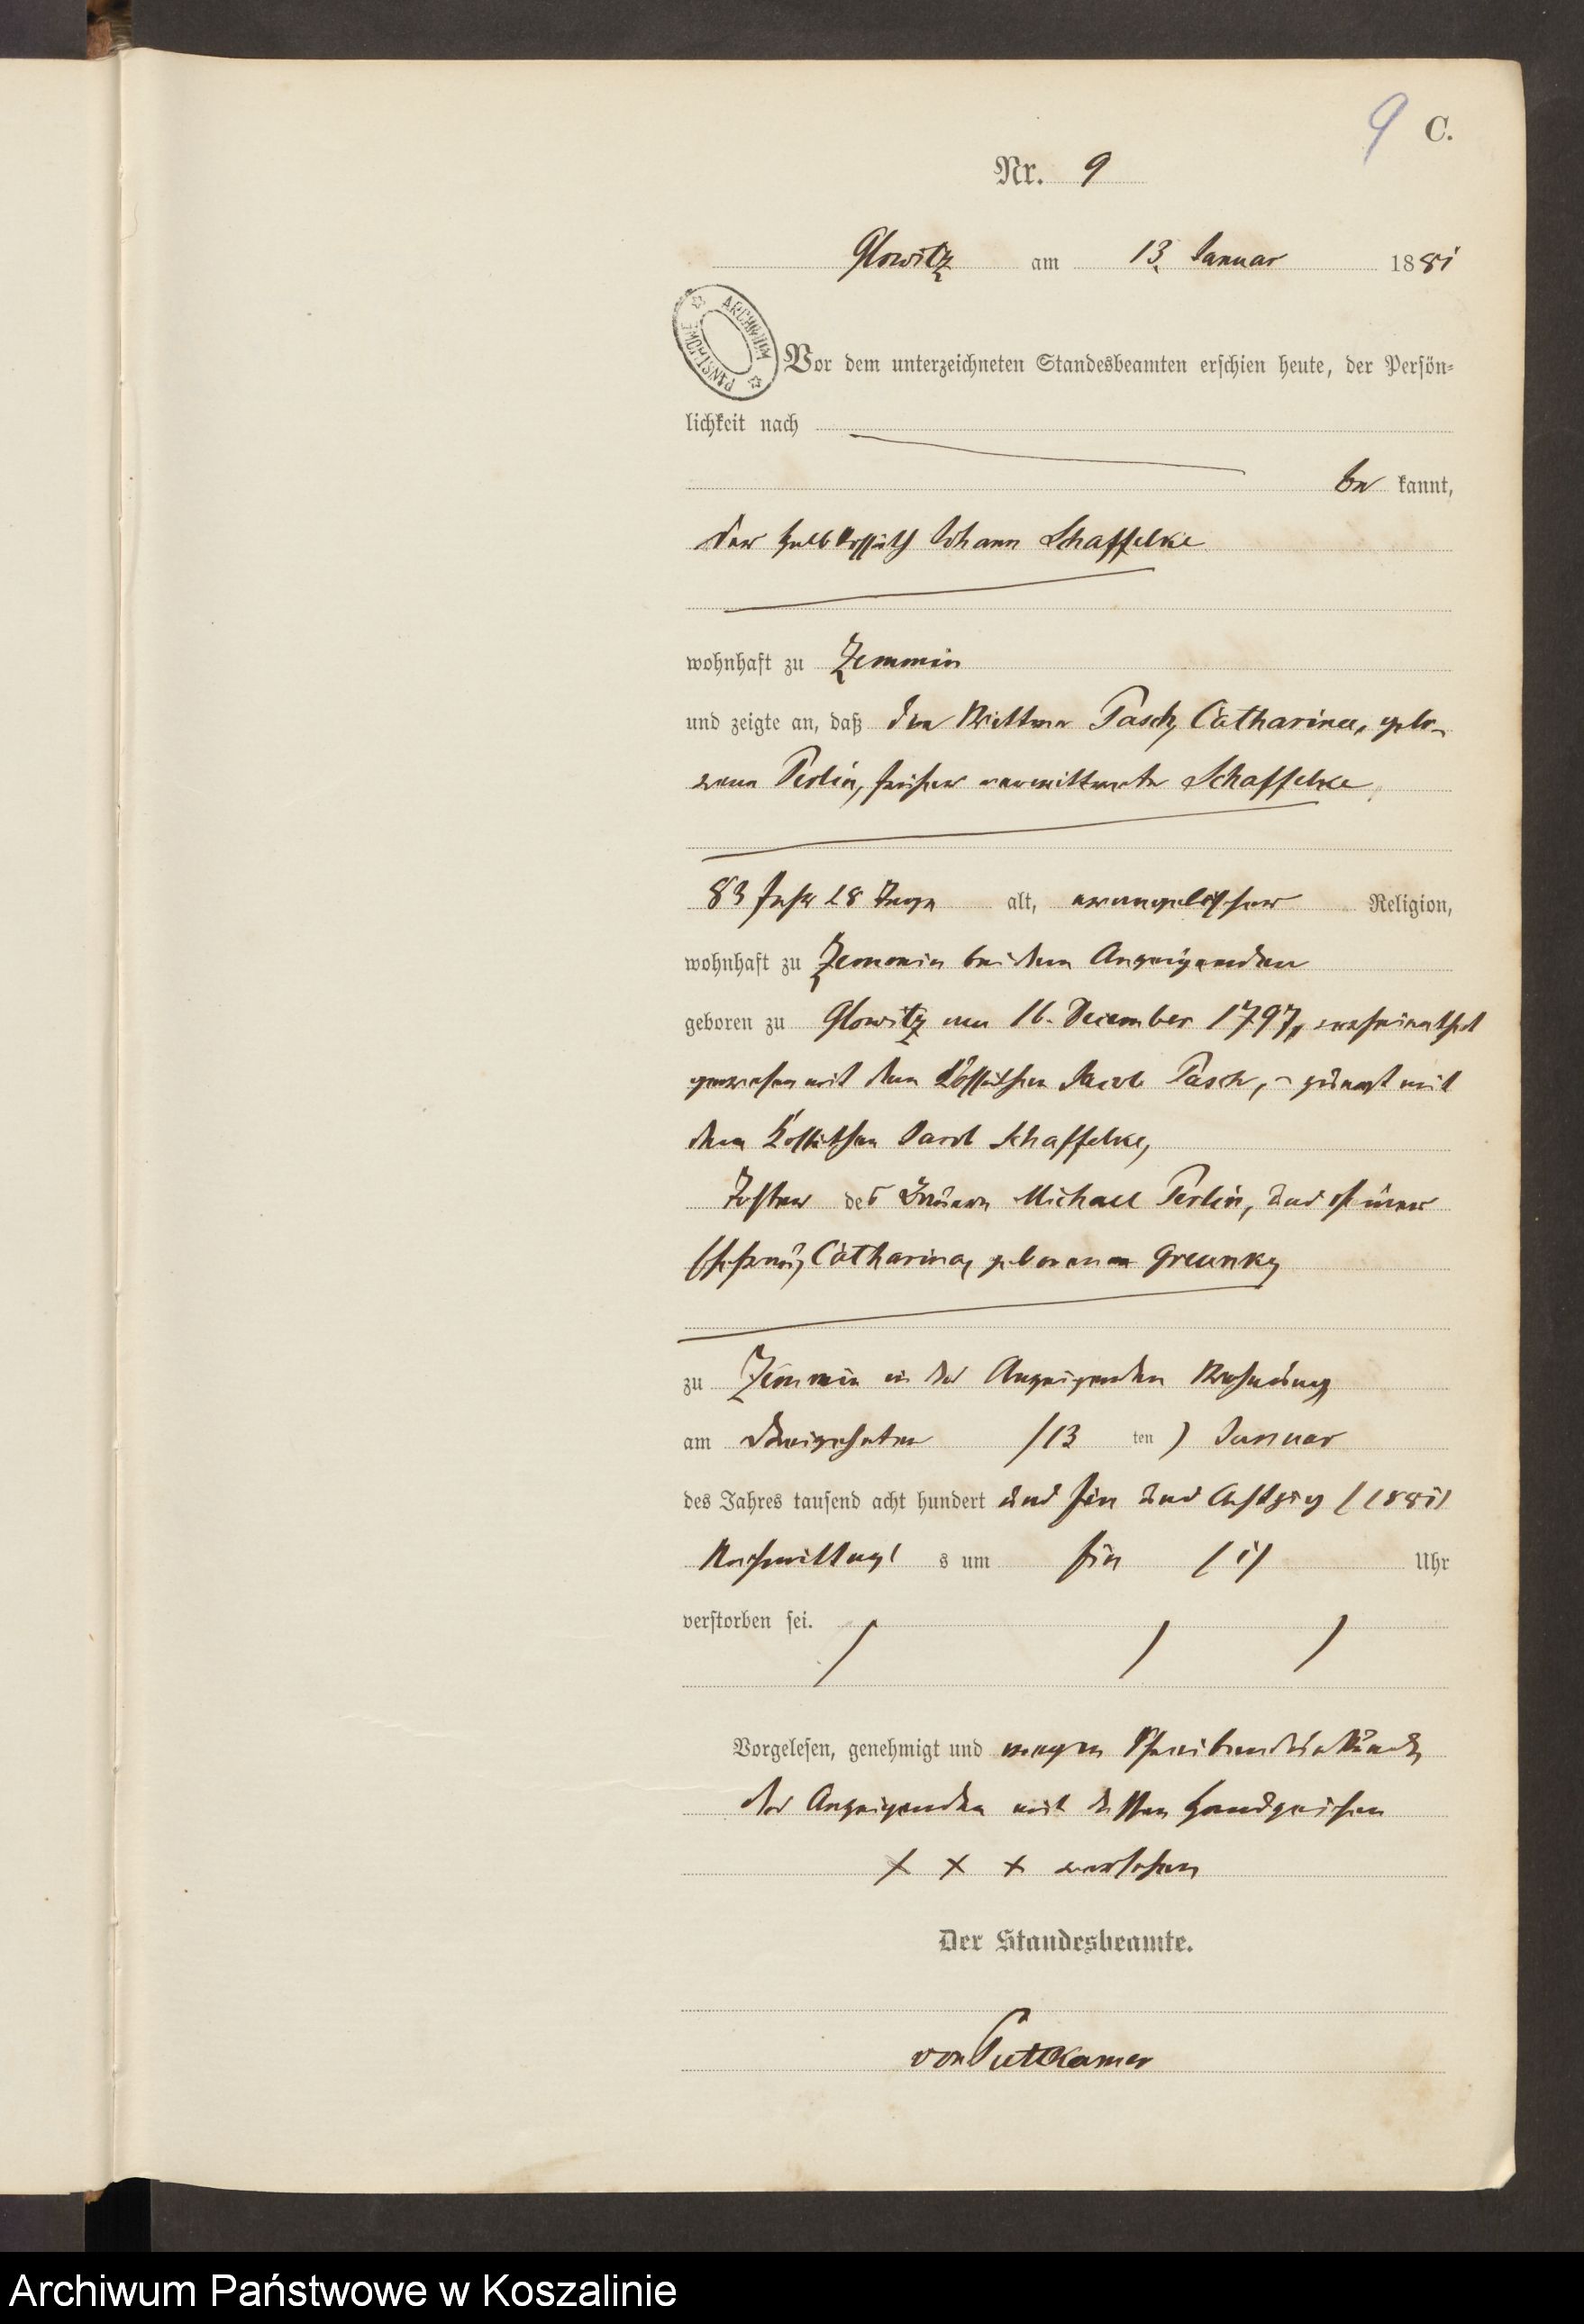 9 C.
Nr. 9
Glowitz am 13. Januar 1881
ARCHIWUM PAŃSTWOWE
Vor dem unterzeichneten Standesbeamten erschien heute, der Persön-
lichkeit nach
be kannt,
der Halbkossäth Johann Schaffelke
wohnhaft zu Zemmin
und zeigte an, daß die Wittwe Pasch, Catharina, gebo-
rene Perlin, früher verwittwete Schaffelke,
83 Jahr 28 Tage alt, evangelischer Religion,
wohnhaft zu Zemmin bei dem Anzeigenden
geboren zu Glowitz am 16. December 1797, verheirathet
gewesen mit dem Kossäthen Jacob Pasch, mit
dem Kossäthen Schaffelke,
Tochter des Bauern Michael Perlin, und seiner
Ehefrau, Catharina, geborenen Greunke
zu Zemmin in des Anzeigenden Wohnung
am dreizehnten /13 ten ) Januar
des Jahres tausend acht hundert und ein und achtzig /1881/
Nachmittags s um ein /1/ Uhr
verstorben sei.
Vorgelesen, genehmigt und wegen Schreibensunkunde
des Anzeigenden mit dessen Handzeichen
X X X versehen
Der Standesbeamte.
von Puttkamer
Archiwum Państwowe w Koszalinie